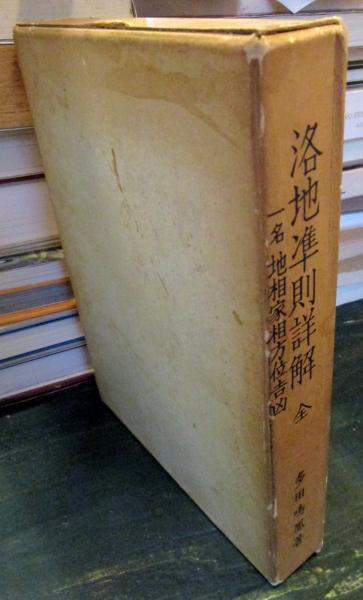 洛地準則詳解 全
一名 地相家相方位吉凶
多田鳴鳳著